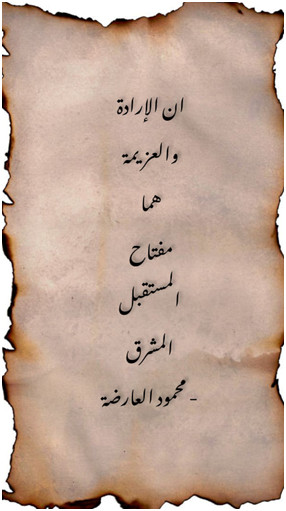 ان الإرادة
والعزيمة
هما
مفتاح
المستقبل
المشرق
- محمود العارضة